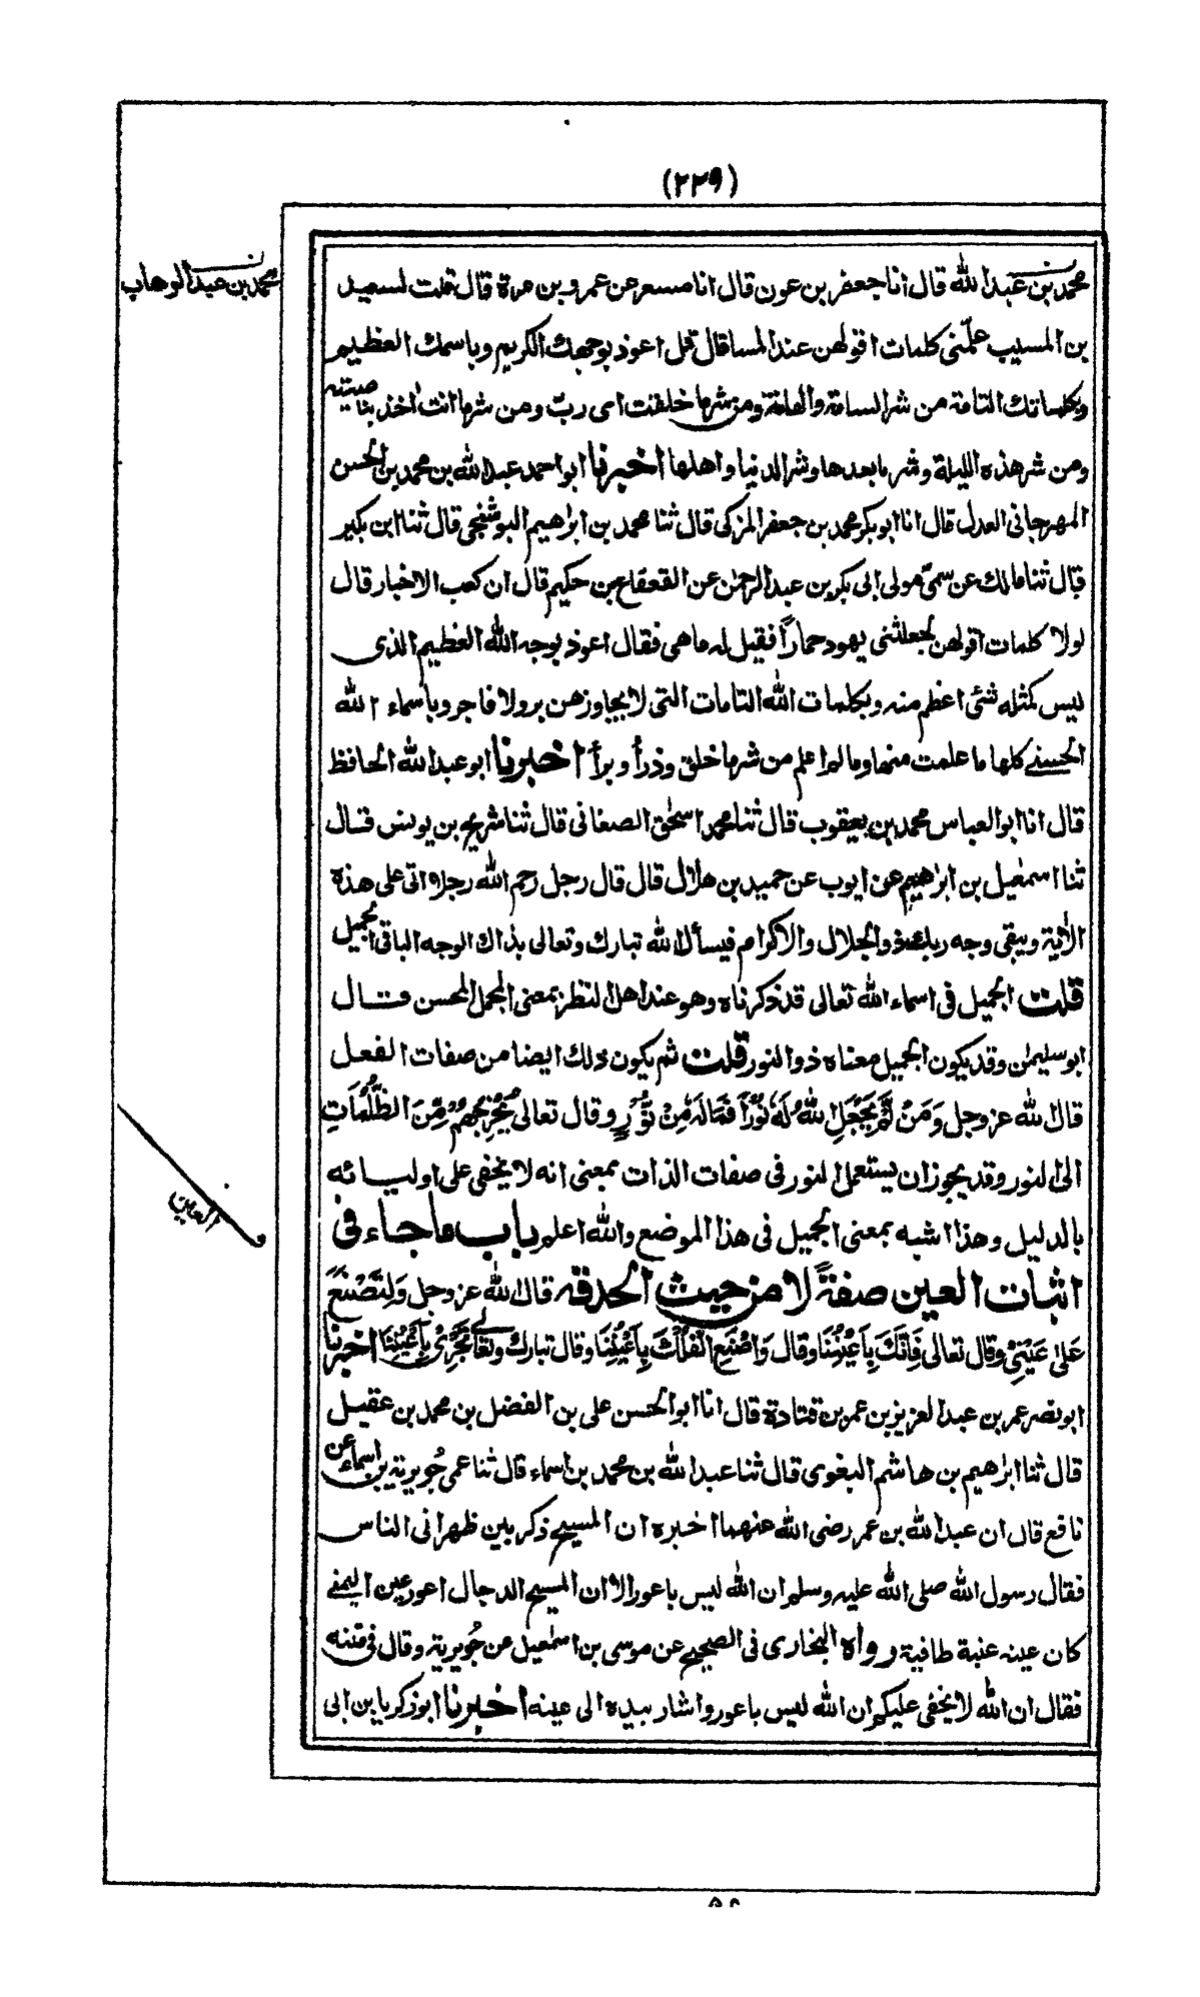 (٢٢٩)
محمد بن عبد الله قال انا جعفر بن عون قال انا مسعر عن عمرو بن مرة قال قلت لسعيد
محمد بن عبد الوهاب
بن المسيب علّمنى كلمات اقولهن عند المساقال قل اعوذ بوجهك الكريم وباسمك العظيم
وبكلماتك التامة من شر السامة والعامة ومن شرما خلقت اى ربّ ومن شرما انت اخذ بناصيته
ومن شر هذه الليلة وشر ما بعدها وشر الدنيا واهلها اخبرنا ابو احمد عبد الله بن محمد بن الحسن
المهرجانى العدل قال انا ابو بكر محمد بن جعفر المزكى قال ثنا محمد بن ابرٰهيم البوشنجى قال ثنا ابن بكير
قال ثنا مالك عن سمىّ مولى ابى بكر بن عبد الرحمٰن عن القعقاع بن حكيم قال ان كعب الاخبار قال
لولا كلمات اقولهن لجعلتنى يهود حماراً فقيل له ما هى فقال اعوذ بوجه الله العظيم الذى
ليس كمثله شئى اعظم منه وبكلمات الله التامات التى لا يجاوزهن بر ولا فاجر وباسماء الله
الحسنے كلها ما علمت منها وما لم اعلم من شرما خلق وذرأ وبرأ اخبرنا ابو عبد الله الحافظ
قال انا ابو العباس محمد بن يعقوب قال ثنا محمد اسحٰق الصغانى قال ثنا شريح بن يونس قال
ثنا اسمٰعيل بن ابرٰهيم عن ايوب عن حميد بن هلال قال قال رجل رحم الله رجلا اتى على هذه
الاٰية ويبقى وجه ربك ذو الجلال والاكرام فيسأل الله تبارك وتعالى بذاك الوجه الباقى الجميل
قلت الجميل فى اسماء الله تعالى قد ذكرناه وهو عند اهل النظر بمعنى المجمل المحسن قال
ابو سليمٰن وقد يكون الجميل معناه ذو النور قلت ثم يكون ذلك ايضا من صفات الفعل
قال الله عز وجل وَمَنْ لَّمْ يَجْعَلِ اللهُ لَهٗ نُوْرًا فَمَالَهٗ مِنْ نُّوْرٍ وقال تعالى يُخْرِجُهُمْ مِّنَ الظُّلُمَاتِ
الى النور وقد يجوز ان يستعمل النور فى صفات الذات بمعنى انه لا يخفى على اوليائه
العين
بالدليل وهذا اشبه بمعنى الجميل فى هذا الموضع والله اعلم باب ما جاء فى
اثبات العين صفةً لا من حيث الحدقه قال الله عز وجل وَلِتُصْنَعَ
عَلىٰ عَيْنِىْ وقال تعالى فَاِنَّكَ بِاَعْيُنِنَا وقال وَاصْنَعِ الْفُلْكَ بِاَعْيُنِنَا وقال تبارك وتعالے تَجْرِىْ بِاَعْيُنِنَا اخبرنا
ابو نصر عمر بن عبد العزيز بن عمر بن قتادة قال انا ابو الحسن على بن الفضل بن محمد بن عقيل
قال ثنا ابرٰهيم بن هاشم البغوى قال ثنا عبد الله بن محمد بن اسماء قال ثنا عمى جُويرية بن اسماء عن
نافع قال ان عبد الله بن عمر رضى الله عنهما اخبره ان المسيح ذكر بين ظهرانى الناس
فقال رسول الله صلى الله عليه وسلم ان الله ليس باعور الا ان المسيح الدجال اعور عين اليمنے
كان عينه عنبة طافية رواه البخارى فى الصحيح عن موسى بن اسمٰعيل عن جُويرية وقال فى متنه
فقال ان الله لا يخفى عليكم ان الله ليس باعور واشار بيده الى عينه اخبرنا ابو زكريا بن ابى